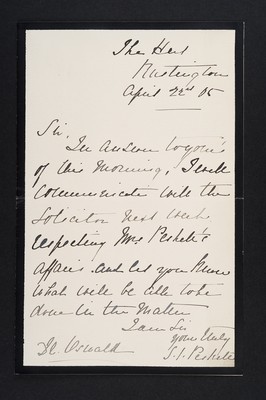 The
Rustington
April 22nd 05
Sir,
In answer to yours
of this morning, I will
communicate with the
Solicitor next week
respecting Mrs Peskett's
affairs and let you know
what will be able to be
done in the matter
I am Sir
yours truly
Oswald
Peskett